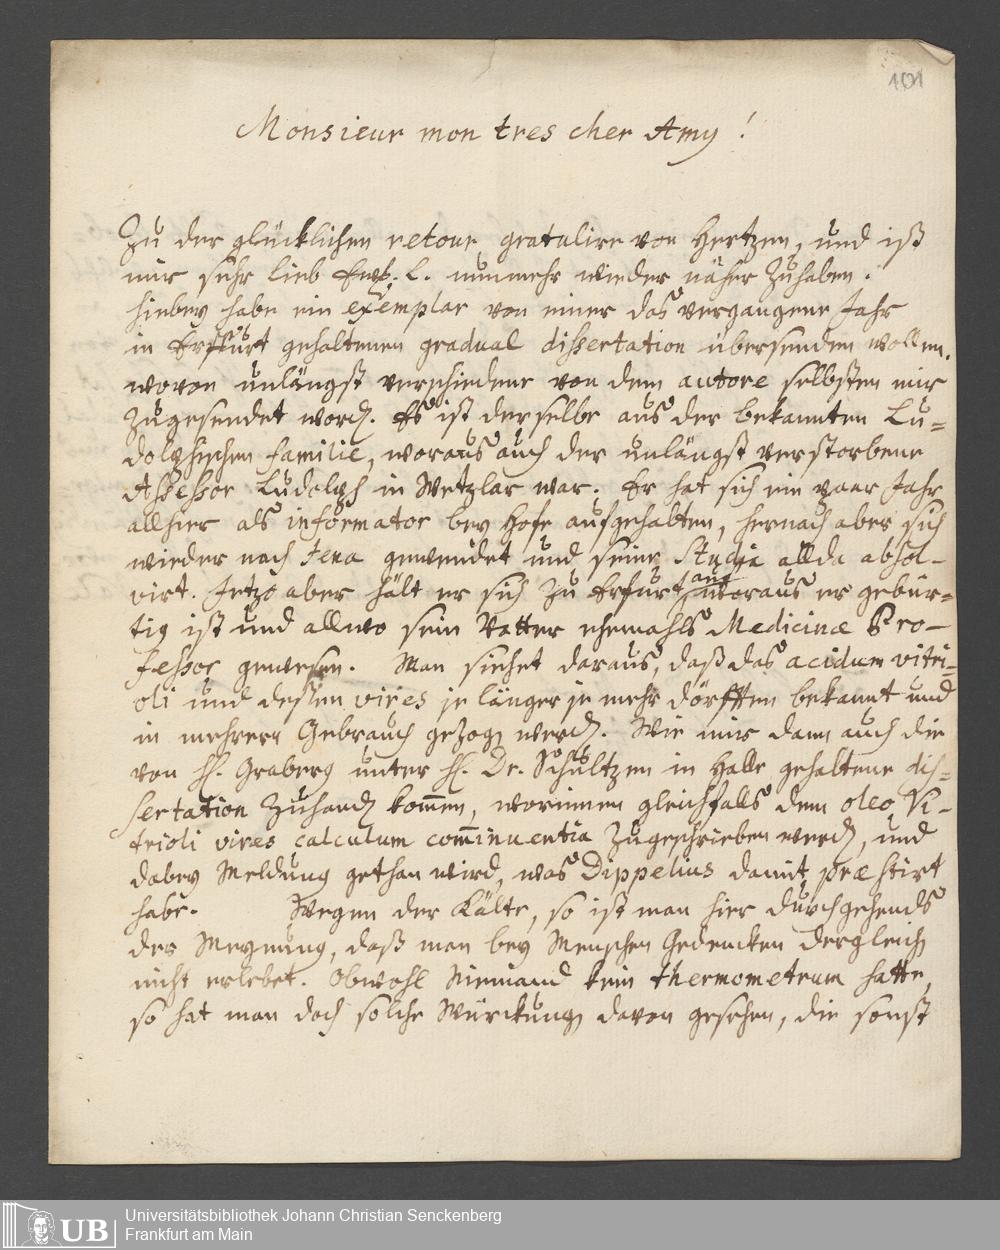 101
Monsieur mon tres cher Amy !
Zu der glücklichen retour gratulire von Hertzen, und ist
mir sehr lieb Ewl. L. nunmehr wieder näher Zuhaben.
hiebey habe ein exemplar von einer das vergangene Jahr
in Erffurt gehaltenen gradual dissertation übersenden wollen,
wovon unlängst verschiedene von dem autore selbsten mir
Zugesendet word. Es ist derselbe aus der bekannten Lu-
dolphischen familie, woraus auch der unlängst verstorbene
Assessor Ludolph in Wetzlar war. Er hat sich ein paar Jahr
allhier als informator bey Hofe aufgehalten, hernach aber sich
wieder nach Jena gewendet und seine Studia allda absol-
virt. Jetzo aber hält er sich zu Erfurt auf woraus er gebür-
tig ist und allwo sein Vatter ehemahls Medicinæ Pro-
fessor gewesen. Man siehet daraus, daß das acidum vitri-
oli und dessen vires je länger je mehr dörfften bekannt und
in mehrern Gebrauch gezog werd. Wie mir dann auch die
von H. Graberg unter H. Dr. Schultzen in Halle gehaltene dis-
sertation Zuhand kom̄en, worinnen gleichfalls dem oleo Vi-
trioli vires calculum com̄inuentia Zugeschrieben werd, und
dabey Meldung gethan wird, was Dippelius damit præstirt
habe. Wegen der Kälte, so ist man hier durchgehends
der Meynung, daß man bey Menschen Gedencken dergleich
nicht erlebet. Obwohl Niemand kein thermometrum hatte,
so hat man doch solche Würckung davon gesehen, die sonst
UB
Universitätsbibliothek Johann Christian Senckenberg
Frankfurt am Main